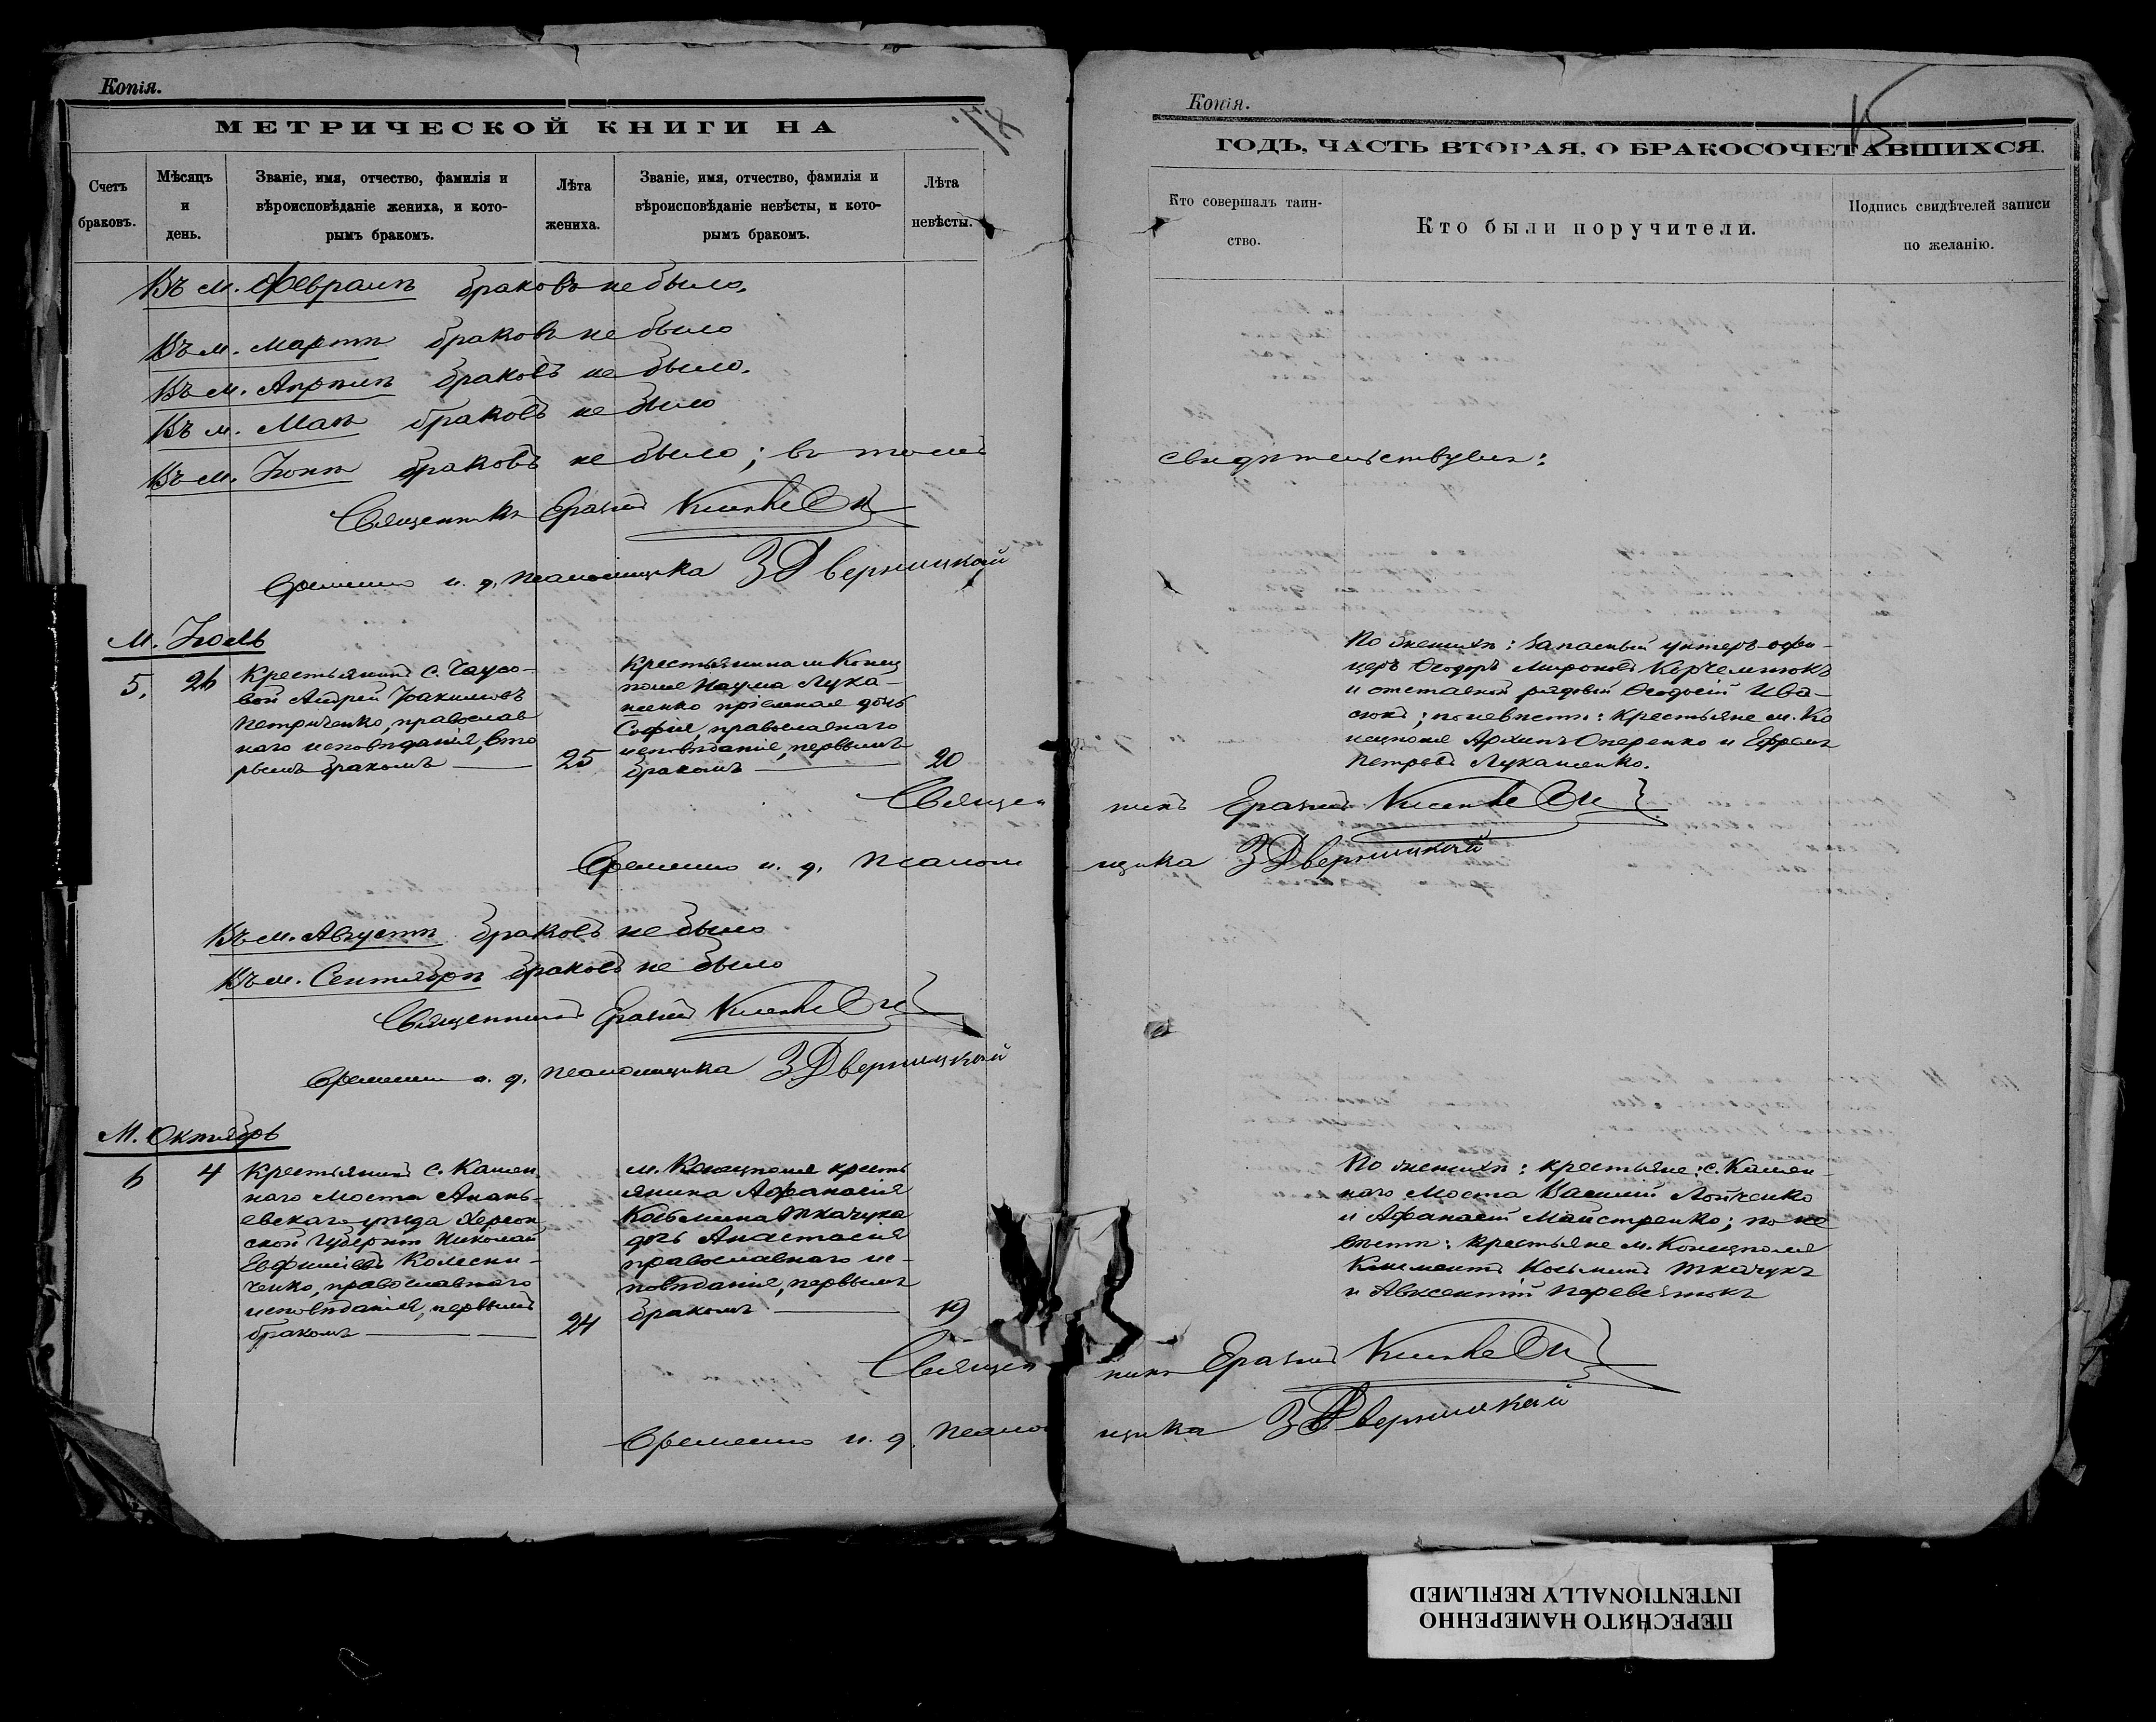 Копія.
МЕТРИЧЕСКОЙ КНИГИ НА
Счетъ браковъ.
Мѣсяцъ и день.
Званіе, имя, отчество, фамилія и
вѣроисповѣданіе жениха, и кото-
рымъ бракомъ.
Лѣта жениха.
Званіе, имя, отчество, фамилія и
вѣроисповѣданіе невѣсты, и кото-
рымъ бракомъ.
Лѣта невѣсты.
Въ м. Февралѣ браковъ не было.
Въ м. Мартѣ браковъ не было
Въ м. Апрѣлѣ браковъ не было.
Въ м. Маѣ браковъ не было
Въ м. Іюнѣ браковъ не было; въ томъ
Священникъ
Временно и. д. псаломщика З Дверницкій
М. Іюль
5. 26
Крестьянинъ с. Чаусо-
вой Андрей Іоакимовъ
Петриченко, православ
наго исповѣданія, вто
рымъ бракомъ
25
Крестьянина м Конец
поля Наума Лука-
шенко пріемная дочь
Софія, православнаго
исповѣданія, первымъ
бракомъ
20
Священ
Временно и. д. псалом
Въ м. Августѣ браковъ не было
Въ м. Сентябрѣ браковъ не было
Священникъ
Временно и. д. псаломщика З Дверницкій
М. Октябрь
6 4
Крестьянинъ с. Камен
наго Моста Анань-
евскаго уѣзда Херсон
ской губерніи Николай
Евфиміевъ Колесни-
ченко, православнаго
исповѣданія, первымъ
бракомъ
24
м. Конецполя кресть
янина Афанасія
Косьмина Ткачука
дочь Анастасія
православнаго ис-
повѣданія, первымъ
бракомъ
19
Священ
Временно и. д. псалом
Копія.
15
ГОДЪ, ЧАСТЬ ВТОРАЯ, О БРАКОСОЧЕТАВШИХСЯ.
Кто совершалъ таин-
ство.
Кто были поручители.
Подпись свидѣтелей записи
по желанію.
свидѣтельствуемъ:
По женихѣ: запасный унтеръ-офи-
церъ Ѳеодоръ Мироновъ
и отставной рядовой Ѳеодосій Ива-
сюкъ; по невѣстѣ: крестьяне м. Ко
нецполя Архипъ Оперенко и Ефремъ
Петровъ Лукашенко.
никъ
щика З Дверницкій
По женихѣ: крестьяне: с. Камен-
наго Моста Василій Лойченко
и Афанасій Майстренко; по не
вѣстѣ: крестьяне м. Конецполя
Климентъ Косьминъ Ткачукъ
и Авксентій Перевезюкъ
никъ
щика З Дверницкій
ПЕРЕСНЯТО НАМЕРЕННО
INTENTIONALLY REFILMED